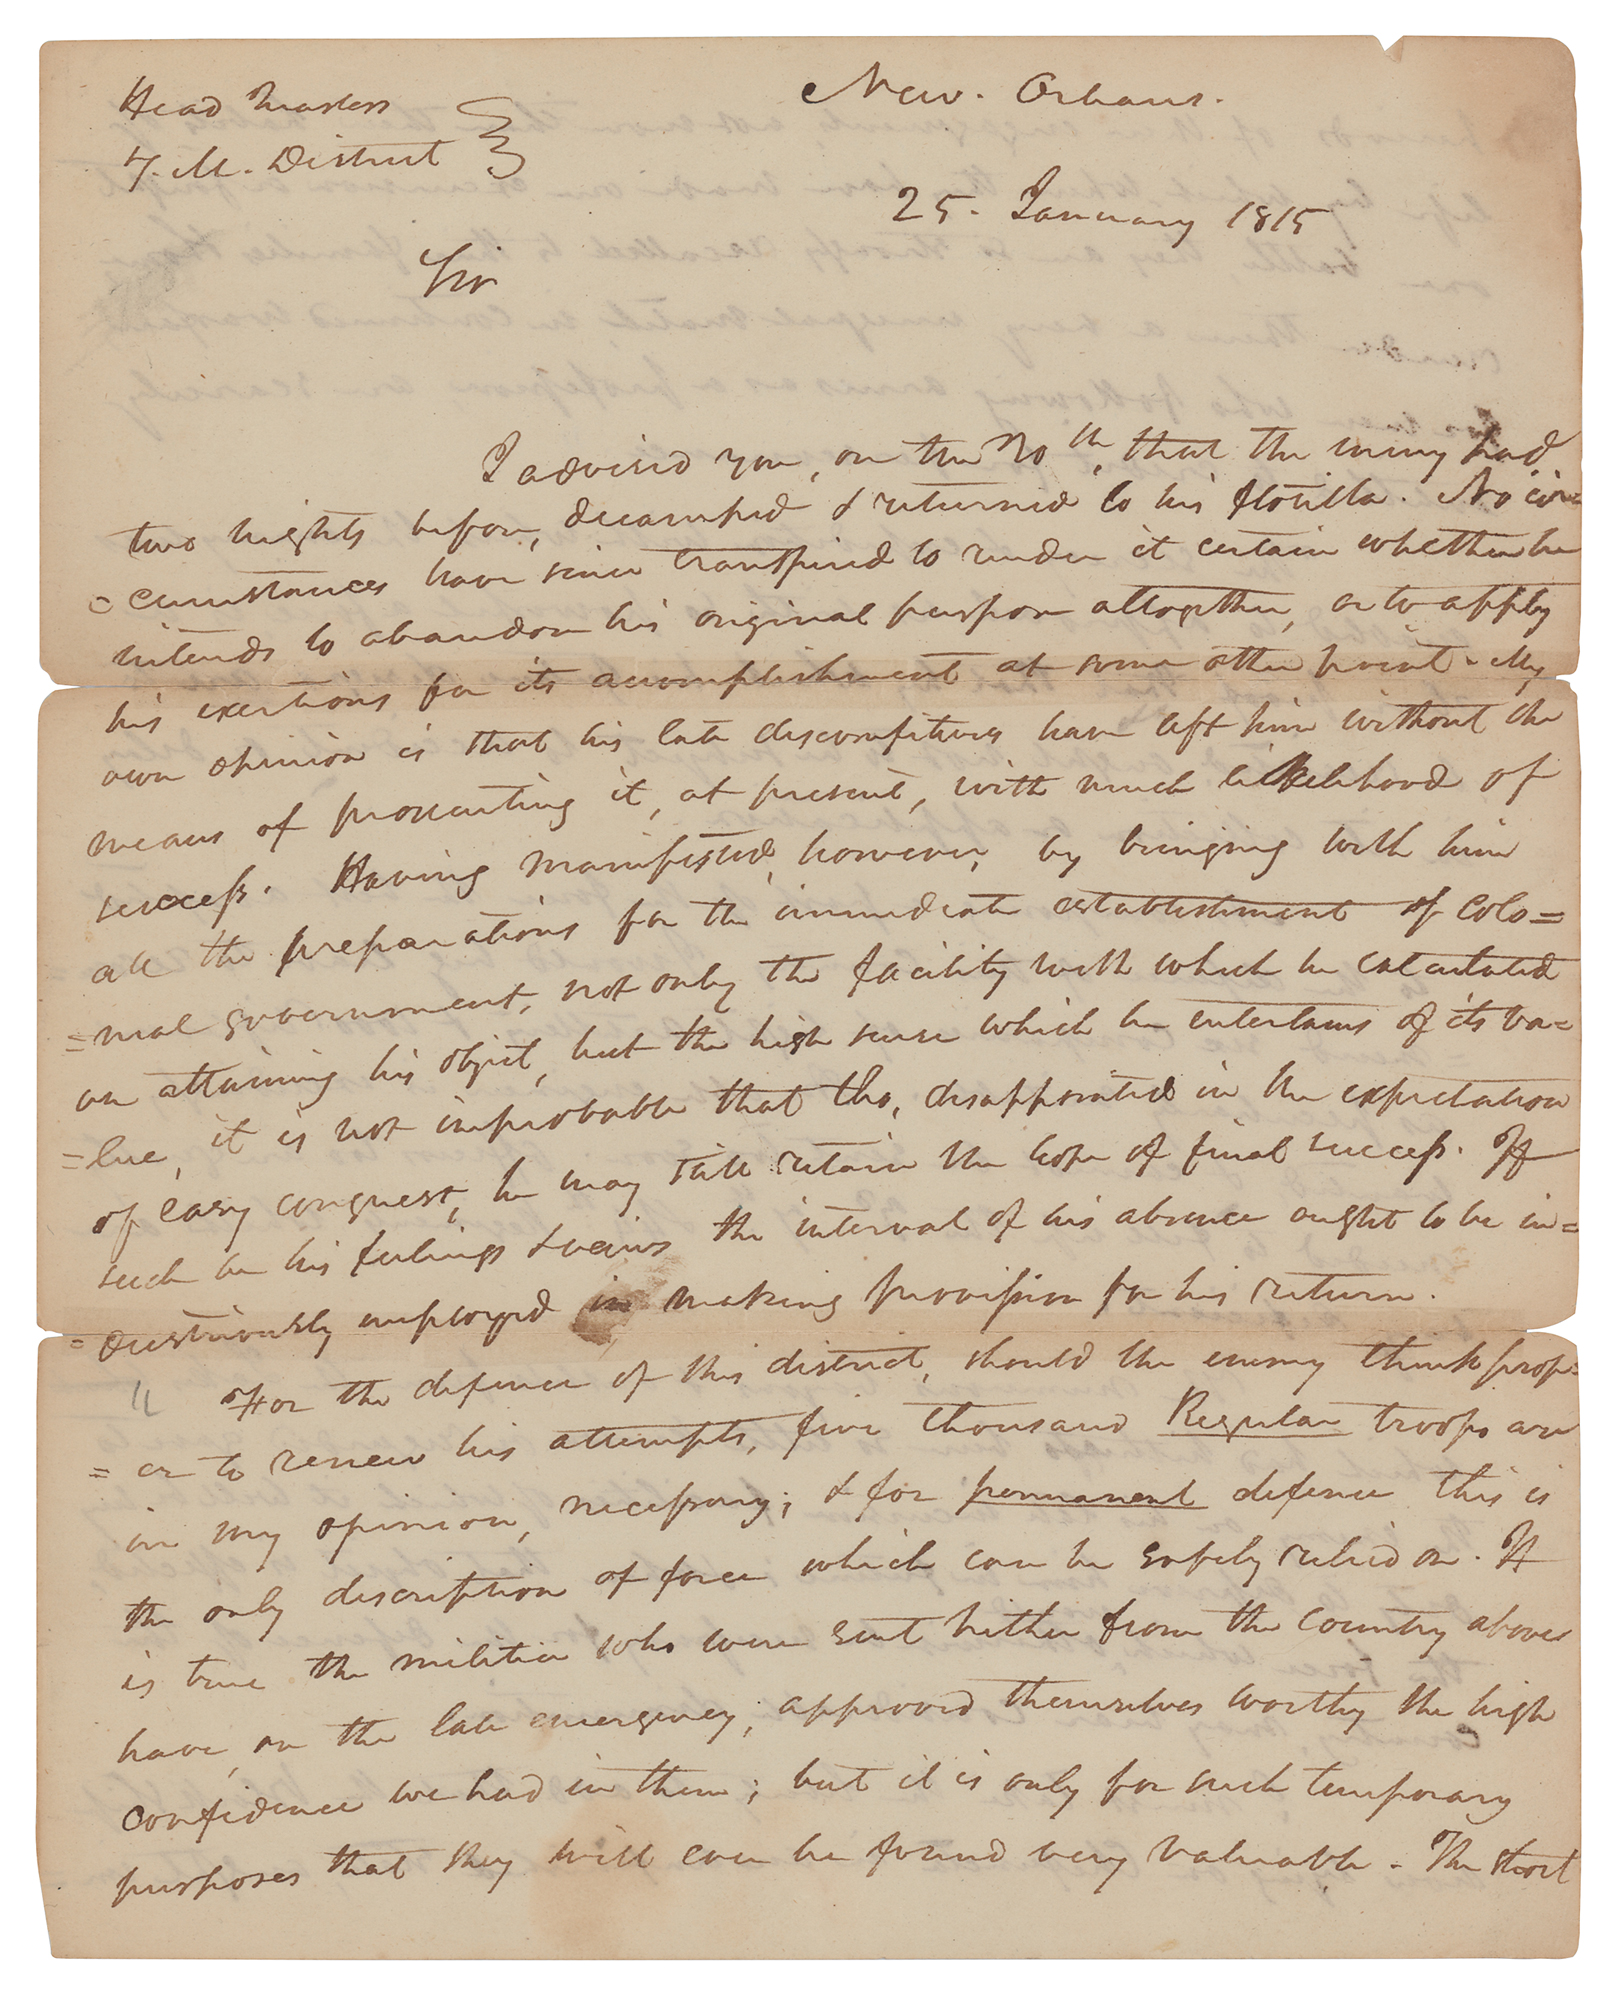 Head Quarters
7. M. District
New. Orleans.
25. January 1815
Sir
I advised you, on the 20th, that the enemy had
two nights before, decamped & returned to his flotilla. No cir=
=cumstances have since transpired to render it certain whether he
intends to abandon his original purpose altogether, or to apply
his exertions for its accomplishment at some other point. My
own opinion is that his late discomfitures have left him without the
means of prosecuting it, at present, with much likelihood of
success. Having manifested, however, by bringing with him
all the preparations for the immediate establishment of colo=
=nial government, not only the facility with which he calculated
on attaining his object, but the high sense which he entertains of its va=
=lue, it is not improbable that tho, disappointed in the expectation
of easy conquest, he may still retain the hope of final success. If
such be his feelings & views the interval of his absence ought to be in=
=dustriously employed in making provision for his return.
For the defence of this district, should the enemy think prop=
=er to renew his attempts, five thousand Regular troops are
in my opinion, necessary; & for permanent defence this is
the only description of force which can be safely relied on. It
is true the militia who were sent hither from the country above
have, on the late emergency, approved themselves worthy the high
confidence we had in them; but it is only for such temporary
purposes that they will ever be found very valuable. The short